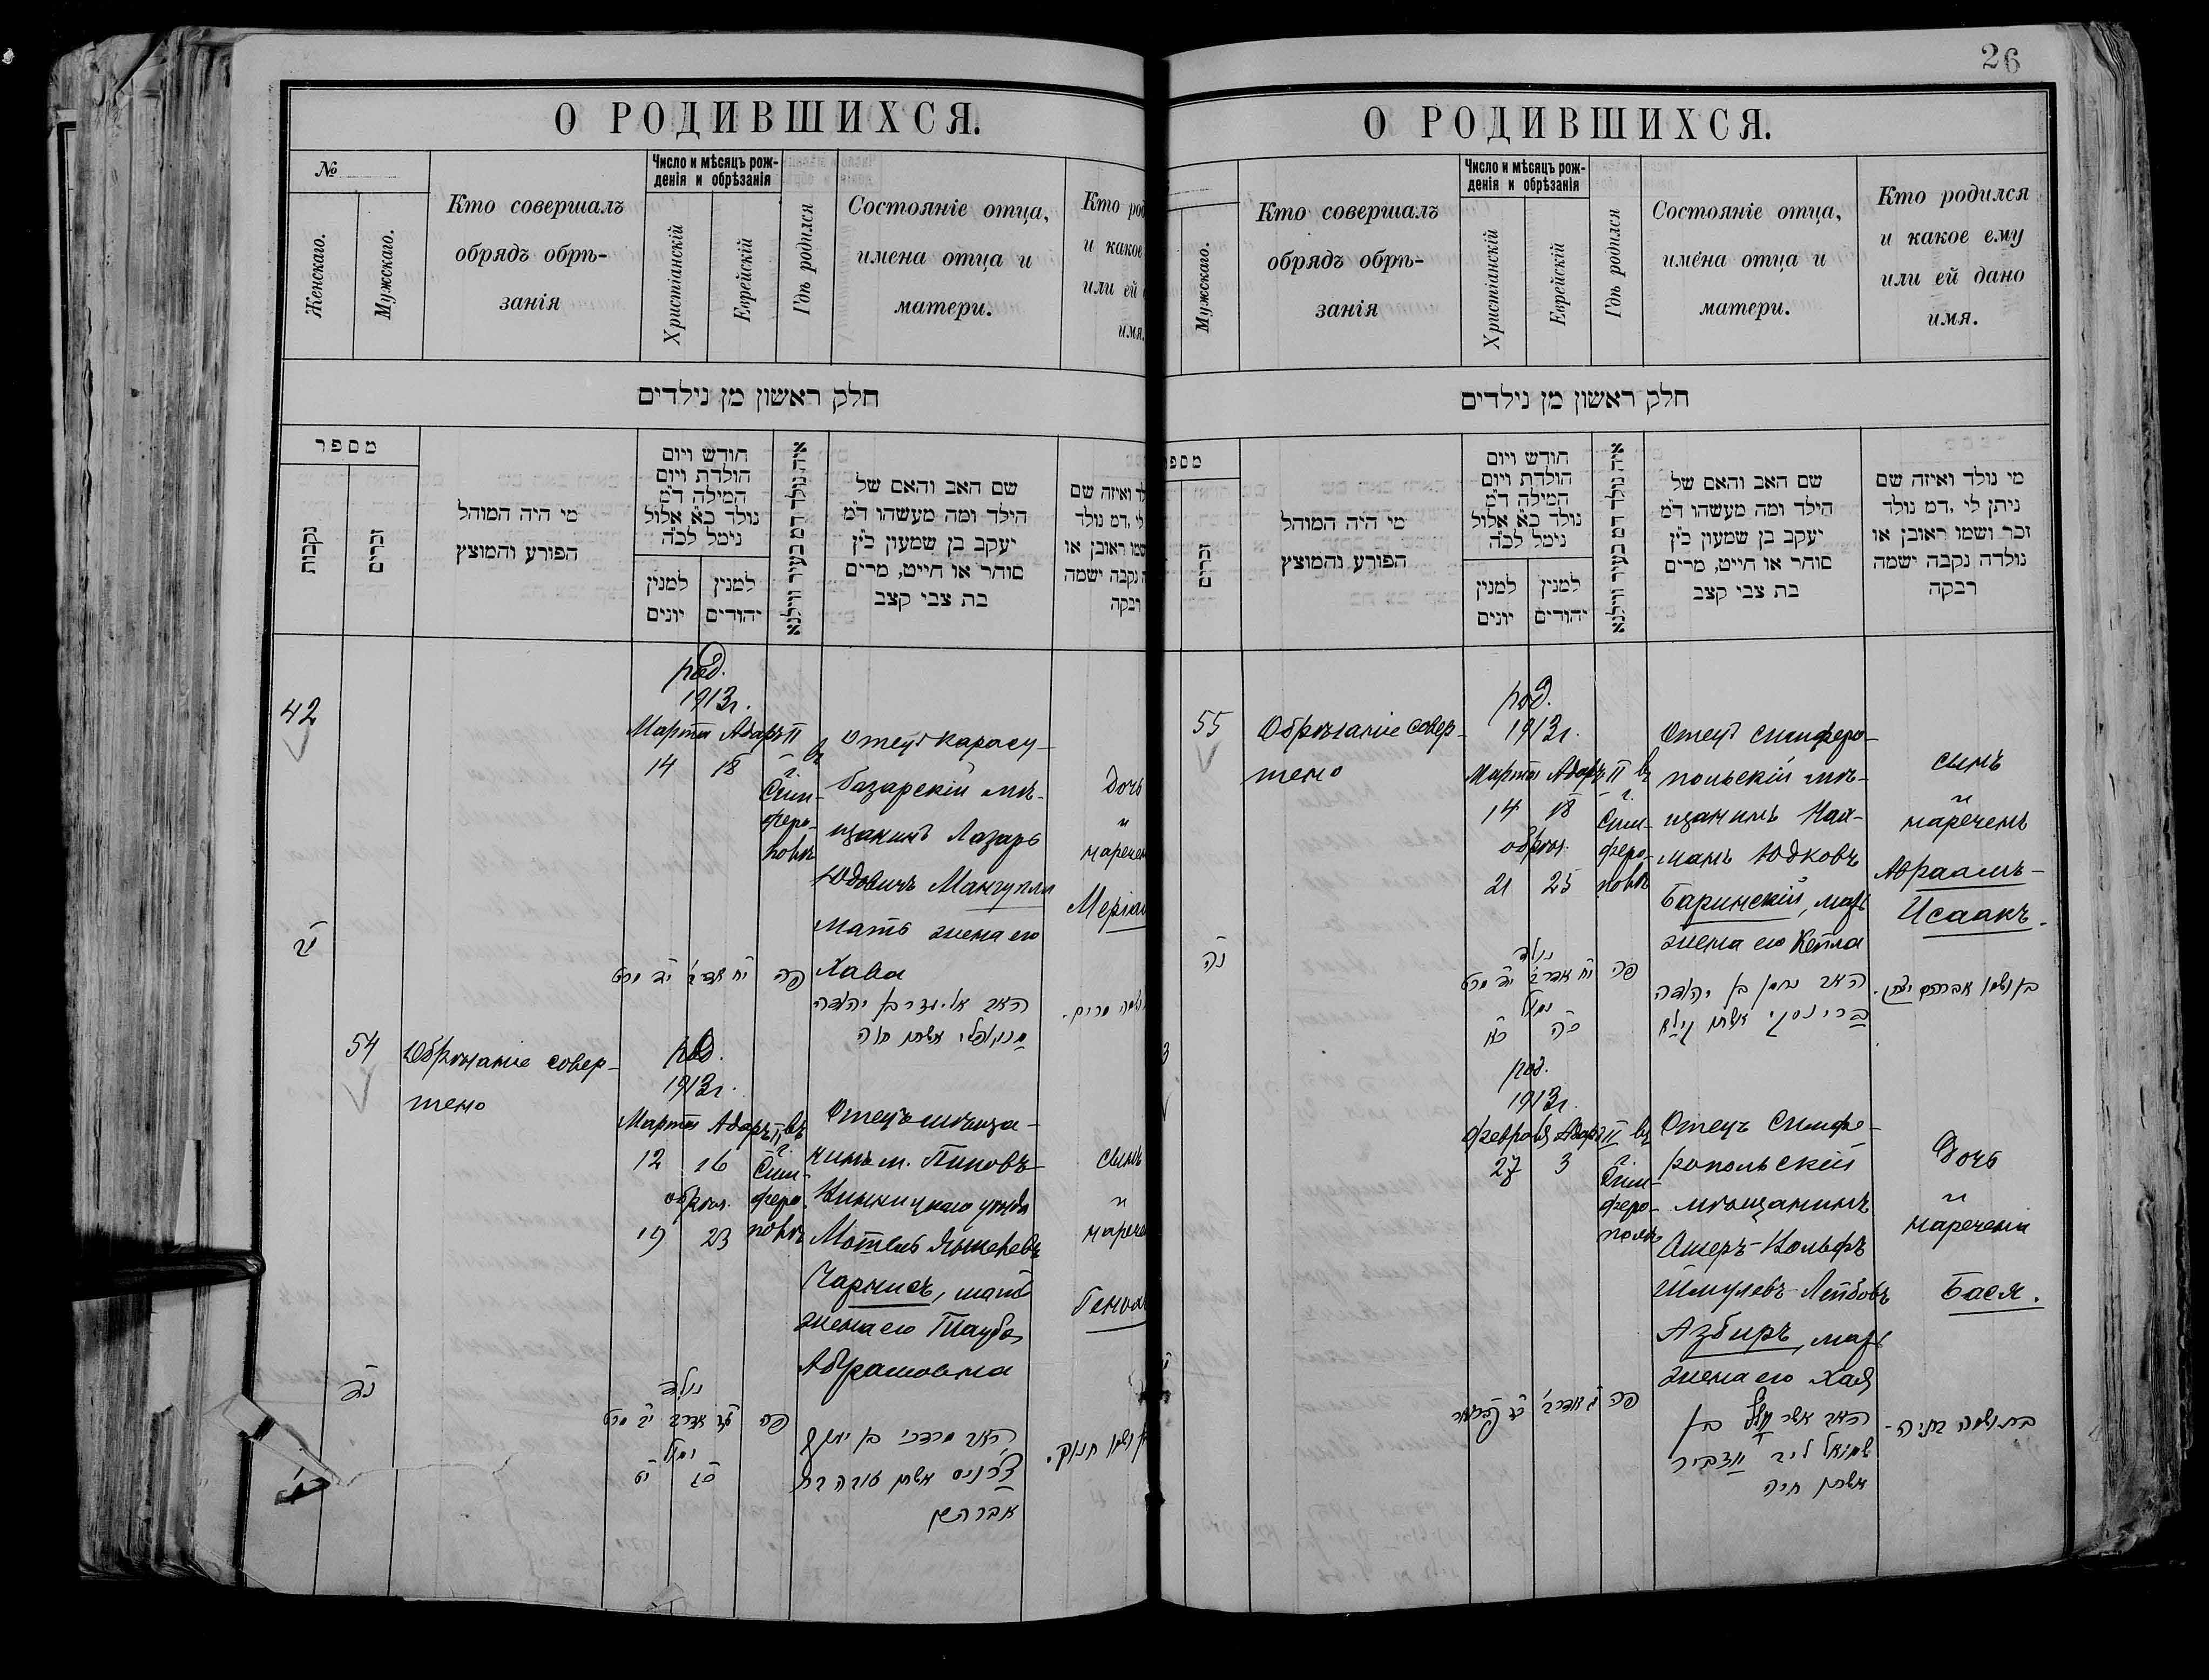 О РОДИВШИХСЯ.
№
Женскаго.
Мужскаго.
Кто совершалъ
обрядъ обрѣ-
занія
Число и мѣсяцъ рож-
денія и обрѣзанія
Христіанскій
Еврейскій
Гдѣ родился
Состояніе отца,
имена отца и
матери.
Кто
и какое
или ей
имя.
חלק ראשון מן נילדים
מספר
נקבות
זכרים
מי היה המוהל
הפורע והמוצץ
חודש ויום
הולדת ויום
המילה ד״מ
נולד כ״א אלול
נימל לכ״ה
למנין
יונים
למנין
יהודים
איה נולד דמ בעיר ווילנא
שם האב והאם של
הילד ומה מעשהו ד״מ
יעקב בן שמעון כ״ץ
סוחר או חייט, מרים
בת צבי קצב
ואיזה שם
נולד
ראובן או
נקבה ישמה
רבקה
42
род.
1913г.
Марта Адаръ II въ
14 18 г.
Сим-
феро-
полѣ
Отецъ карасу-
базарскій мѣ-
щанинъ Лазарь
Юдовичъ Мангупли
мать жена его
Хава
Дочь
и
נולד
פה
54
Обрѣзаніе совер-
шено
род.
1913г.
Марта Адаръ II въ
12 16 г.
Сим-
обрѣз. феро-
19 23 полѣ
Отецъ мѣща-
нинъ м.
Винницкаго уѣзда
Мотель
Чарнисъ, мать
жена его Тауба
Абрамовна
сынъ
и
האב מרדכי בן יוסף
אשתו טובה בת
אברהם
ושמו חנוך.
26
О РОДИВШИХСЯ.
Мужскаго.
Кто совершалъ
обрядъ обрѣ-
занія
Число и мѣсяцъ рож-
денія и обрѣзанія
Христіанскій
Еврейскій
Гдѣ родился
Состояніе отца,
имена отца и
матери.
Кто родился
и какое ему
или ей дано
имя.
חלק ראשון מן נילדים
זכרים
מי היה המוהל
הפורע והמוצץ
חודש ויום
הולדת ויום
המילה ד״מ
נולד כ״א אלול
נימל לכ״ה
למנין
יונים
למנין
יהודים
איה נולד דמ בעיר ווילנא
שם האב והאם של
הילד ומה מעשהו ד״מ
יעקב בן שמעון כ״ץ
סוחר או חייט, מרים
בת צבי קצב
מי נולד ואיזה שם
ניתן לו, דמ נולד
זכר ושמו ראובן או
נולדה נקבה ישמה
רבקה
55
Обрѣзаніе совер-
шено
род.
1913г.
Марта Адаръ II въ
14 18 г.
Сим-
обрѣз. феро-
21 25 полѣ
Отецъ симферо-
польскій мѣ-
щанинъ Нах-
манъ Юдковъ
Баринскій, мать
жена его Кейла
сынъ
и
нареченъ
Авраамъ-
Исаакъ.
נה
האב נחמן בן יהודה
ברינסקי אשתו קילא
בן ושמו אברהם יצחק.
род.
1913г.
Февраля Адаръ II въ
27 3 г.
Сим-
феро-
полѣ
Отецъ Симфе-
ропольскій
мѣщанинъ
Ашеръ-Вольфъ
Шмулевъ-Лейбовъ
Азбиръ, мать
жена его Хая
Дочь
и
наречена
Бася.
האב אשר וואלף בן
שמואל ליב אזביר
אשתו חיה